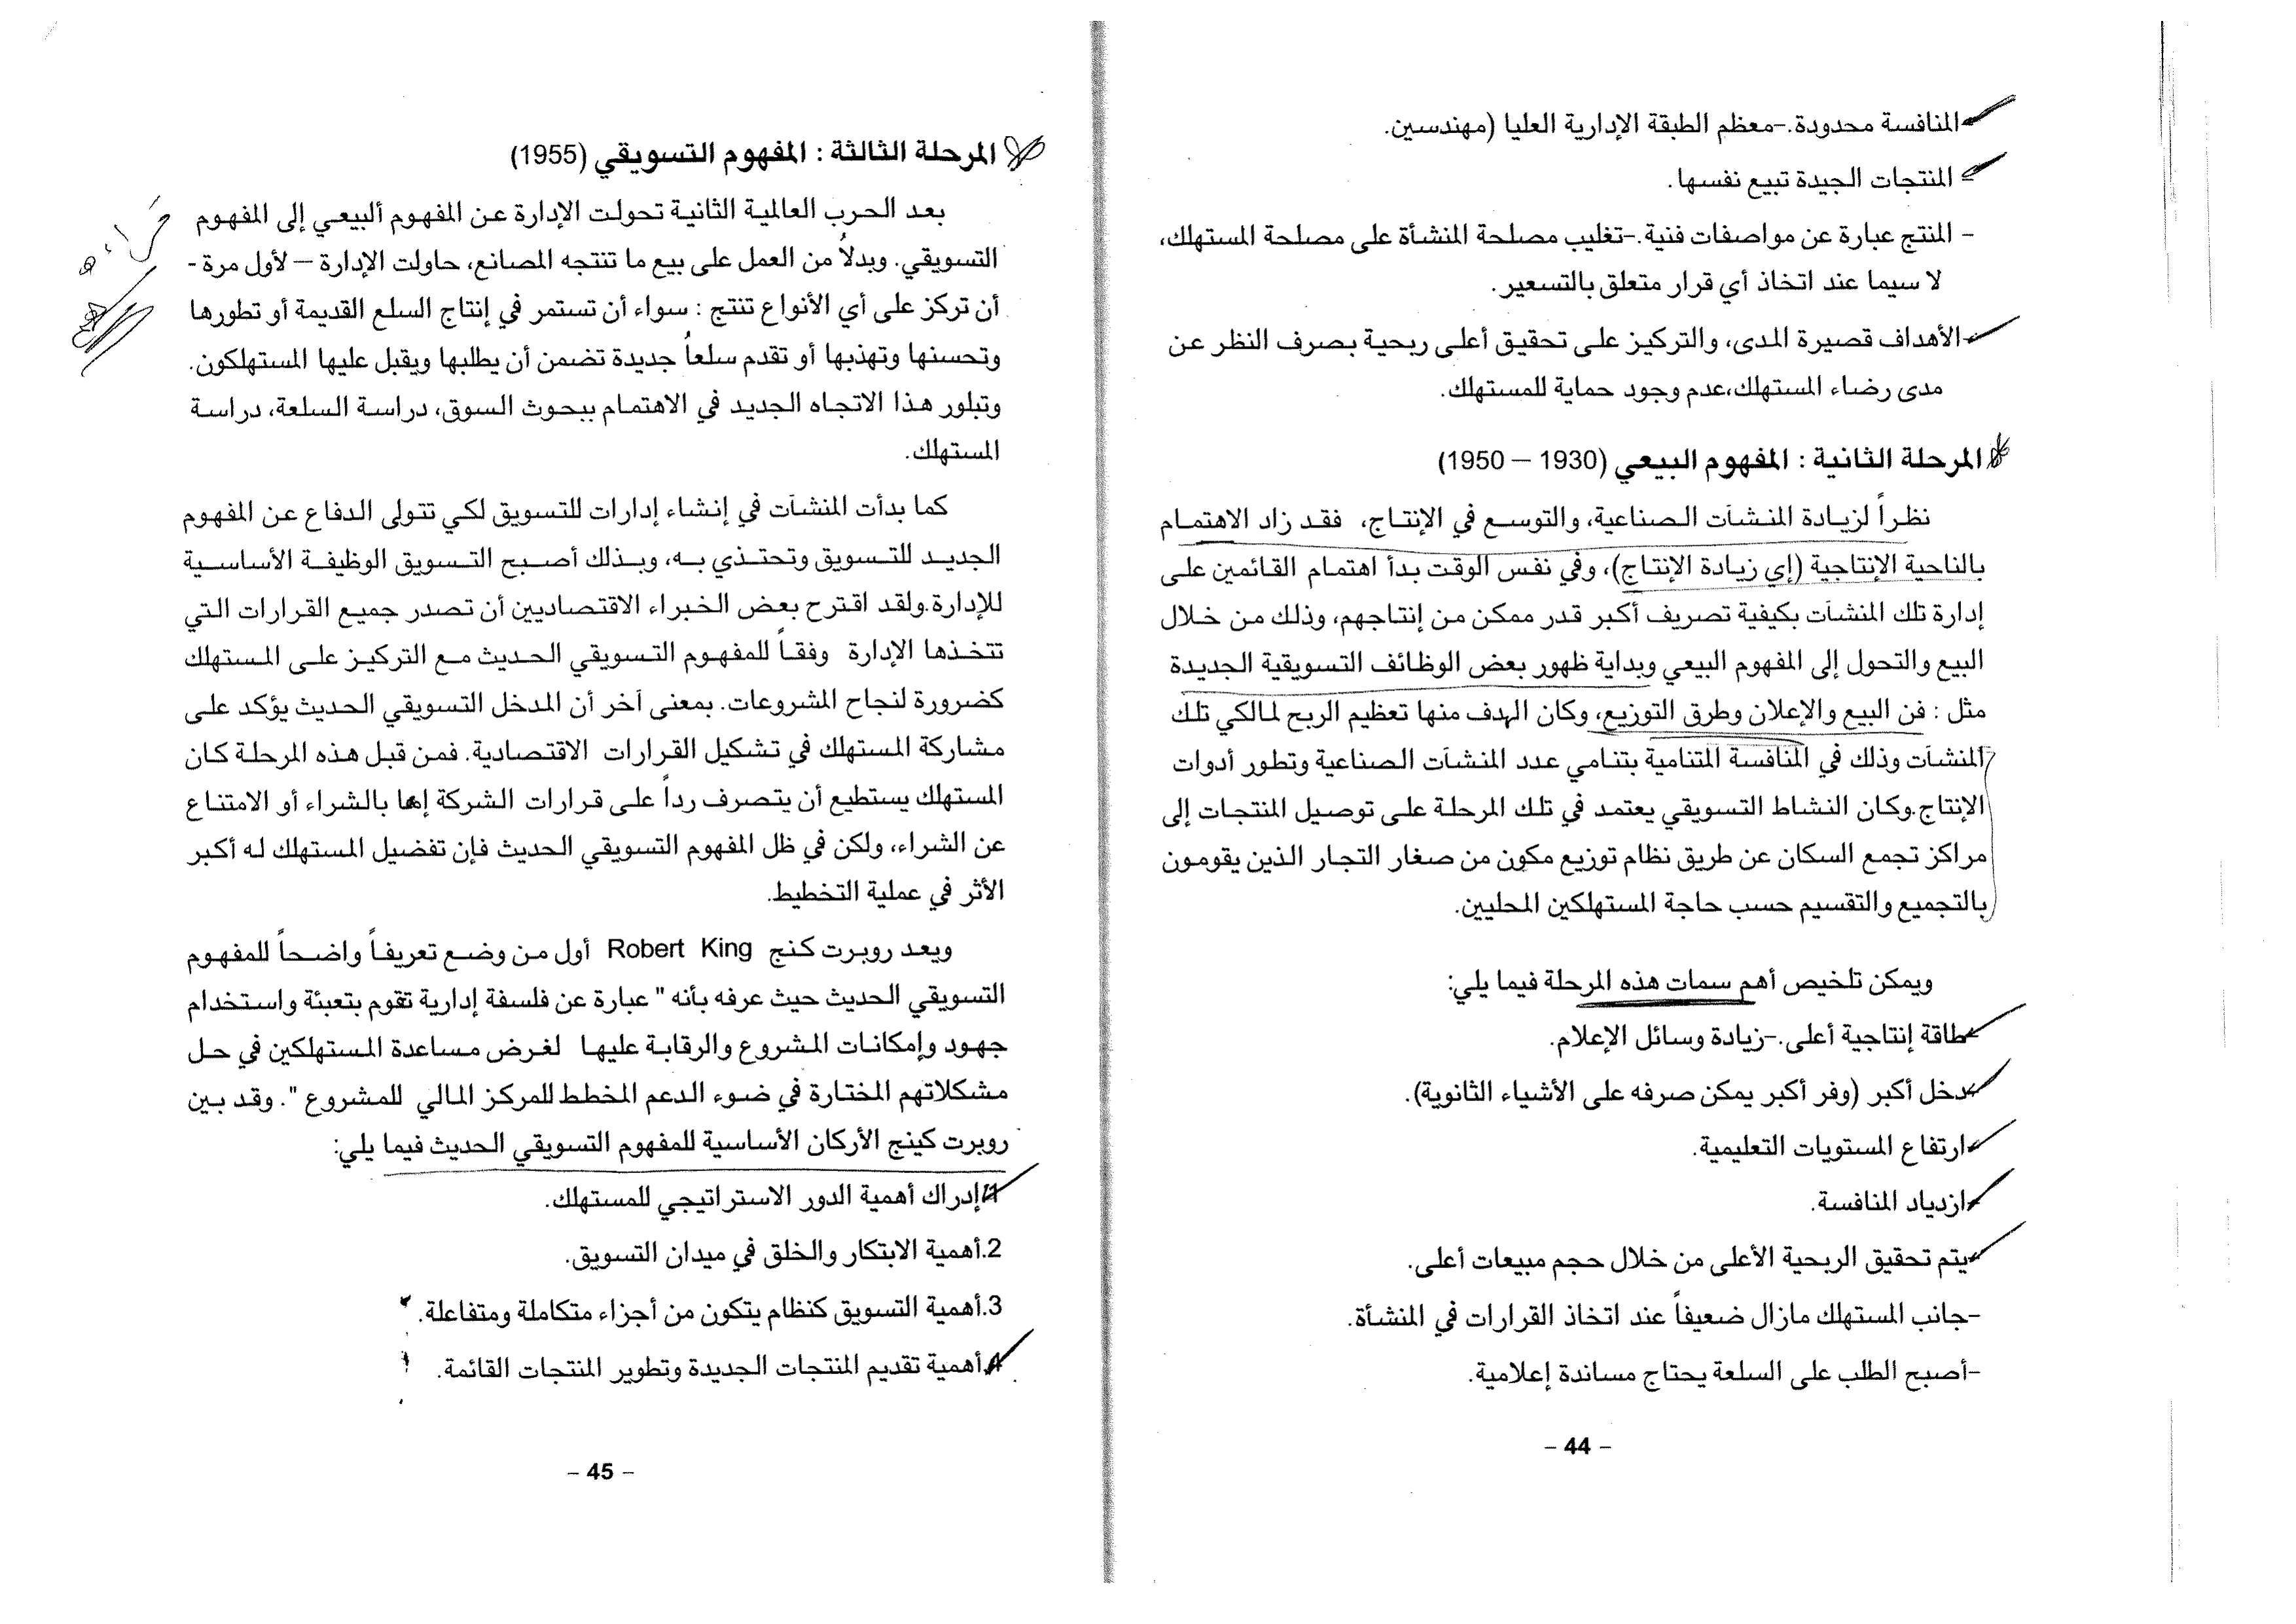 المنافسة محدودة.-معظم الطبقة الإدارية العليا (مهندسين.
المنتجات الجيدة تبيع نفسها.
- المنتج عبارة عن مواصفات فنية.-تغليب مصلحة المنشأة على مصلحة المستهلك،
لا سيما عند اتخاذ أي قرار متعلق بالتسعير.
الأهداف قصيرة المدى، والتركيز على تحقيق أعلى ربحية بصرف النظر عن
مدى رضاء المستهلك،عدم وجود حماية للمستهلك.
المرحلة الثانية : المفهوم البيعي (1930 – 1950)
نظراً لزيادة المنشآت الصناعية، والتوسع في الإنتاج، فقد زاد الاهتمام
بالناحية الإنتاجية (إي زيادة الإنتاج)، وفي نفس الوقت بدأ اهتمام القائمين على
إدارة تلك المنشآت بكيفية تصريف أكبر قدر ممكن من إنتاجهم، وذلك من خلال
البيع والتحول إلى المفهوم البيعي وبداية ظهور بعض الوظائف التسويقية الجديدة
مثل : فن البيع والإعلان وطرق التوزيع، وكان الهدف منها تعظيم الربح لمالكي تلك
المنشآت وذلك في المنافسة المتنامية بتنامي عدد المنشآت الصناعية وتطور أدوات
الإنتاج.وكان النشاط التسويقي يعتمد في تلك المرحلة على توصيل المنتجات إلى
مراكز تجمع السكان عن طريق نظام توزيع مكون من صغار التجار الذين يقومون
بالتجميع والتقسيم حسب حاجة المستهلكين المحليين.
ويمكن تلخيص أهم سمات هذه المرحلة فيما يلي:
طاقة إنتاجية أعلى.-زيادة وسائل الإعلام.
دخل أكبر (وفر أكبر يمكن صرفه على الأشياء الثانوية).
ارتفاع المستويات التعليمية.
ازدياد المنافسة.
يتم تحقيق الربحية الأعلى من خلال حجم مبيعات أعلى.
-جانب المستهلك مازال ضعيفاً عند اتخاذ القرارات في المنشأة.
-أصبح الطلب على السلعة يحتاج مساندة إعلامية.
- 44 -
المرحلة الثالثة : المفهوم التسويقي (1955)
بعد الحرب العالمية الثانية تحولت الإدارة عن المفهوم ألبيعي إلى المفهوم
التسويقي. وبدلاً من العمل على بيع ما تنتجه المصانع، حاولت الإدارة – لأول مرة -
أن تركز على أي الأنواع تنتج : سواء أن تستمر في إنتاج السلع القديمة أو تطورها
وتحسنها وتهذبها أو تقدم سلعاً جديدة تضمن أن يطلبها ويقبل عليها المستهلكون.
وتبلور هذا الاتجاه الجديد في الاهتمام ببحوث السوق، دراسة السلعة، دراسة
المستهلك.
كما بدأت المنشآت في إنشاء إدارات للتسويق لكي تتولى الدفاع عن المفهوم
الجديد للتسويق وتحتذي به، وبذلك أصبح التسويق الوظيفة الأساسية
للإدارة.ولقد اقترح بعض الخبراء الاقتصاديين أن تصدر جميع القرارات التي
تتخذها الإدارة وفقاً للمفهوم التسويقي الحديث مع التركيز على المستهلك
كضرورة لنجاح المشروعات. بمعنى آخر أن المدخل التسويقي الحديث يؤكد على
مشاركة المستهلك في تشكيل القرارات الاقتصادية. فمن قبل هذه المرحلة كان
المستهلك يستطيع أن يتصرف رداً على قرارات الشركة إما بالشراء أو الامتناع
عن الشراء، ولكن في ظل المفهوم التسويقي الحديث فإن تفضيل المستهلك له أكبر
الأثر في عملية التخطيط.
ويعد روبرت كنج Robert King أول من وضع تعريفاً واضحاً للمفهوم
التسويقي الحديث حيث عرفه بأنه " عبارة عن فلسفة إدارية تقوم بتعبئة واستخدام
جهود وإمكانات المشروع والرقابة عليها لغرض مساعدة المستهلكين في حل
مشكلاتهم المختارة في ضوء الدعم المخطط للمركز المالي للمشروع ". وقد بين
روبرت كينج الأركان الأساسية للمفهوم التسويقي الحديث فيما يلي:
1.إدراك أهمية الدور الاستراتيجي للمستهلك.
2.أهمية الابتكار والخلق في ميدان التسويق.
3.أهمية التسويق كنظام يتكون من أجزاء متكاملة ومتفاعلة.
4.أهمية تقديم المنتجات الجديدة وتطوير المنتجات القائمة.
- 45 -